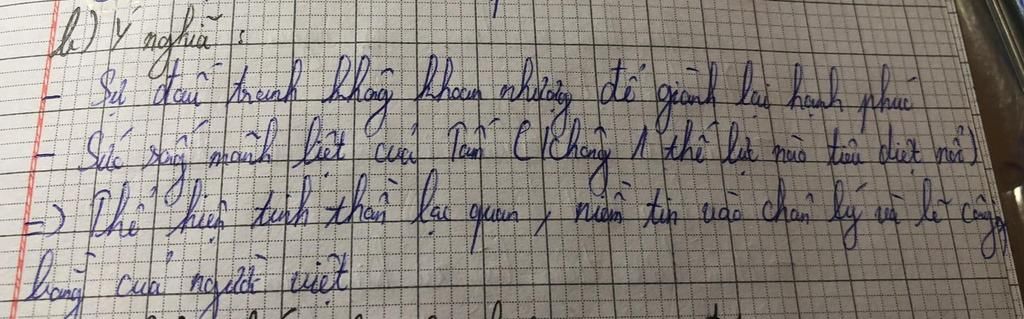 b) Ý nghĩa :
- Sự đấu tranh không khoan nhượng để giành lại hạnh phúc
- Sức sống mãnh liệt của Tấm (không 1 thế lực nào tiêu diệt nổi)
=> Thể hiện tinh thần lạc quan, niềm tin vào chân lý và lẽ công
bằng của người việt